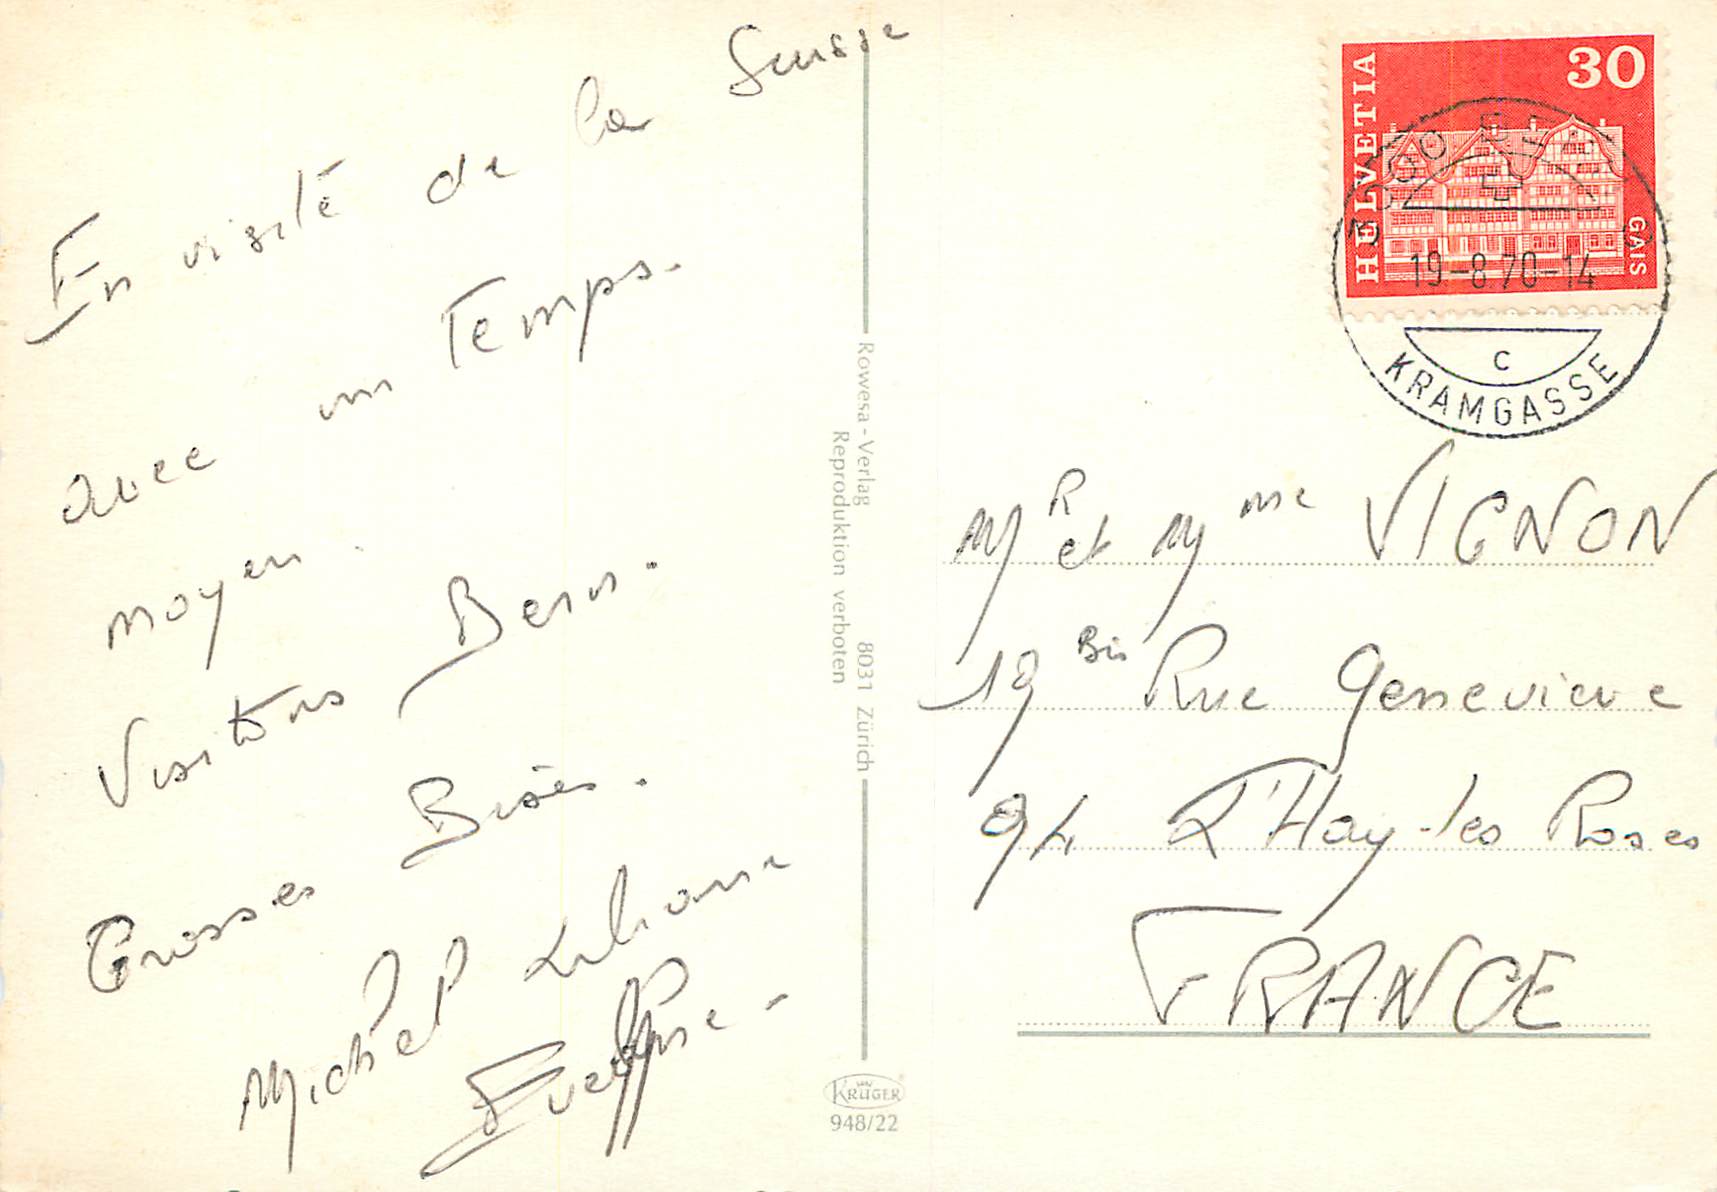 En visite de la Suisse
avec un Temps
moyen.
Visitons Bern.
Grosses Bises.
Michel Liliane
Evelyne -
Rowesa-Verlag 8031 Zürich
Reproduktion verboten
KRÜGER
948/22
HELVETIA
30
GAIS
3000 BERN
19-8 70-14
C
KRAMGASSE
MR et Mme VIGNON
19 Bis Rue Genevieve
94 L'Hay-les Roses
FRANCE